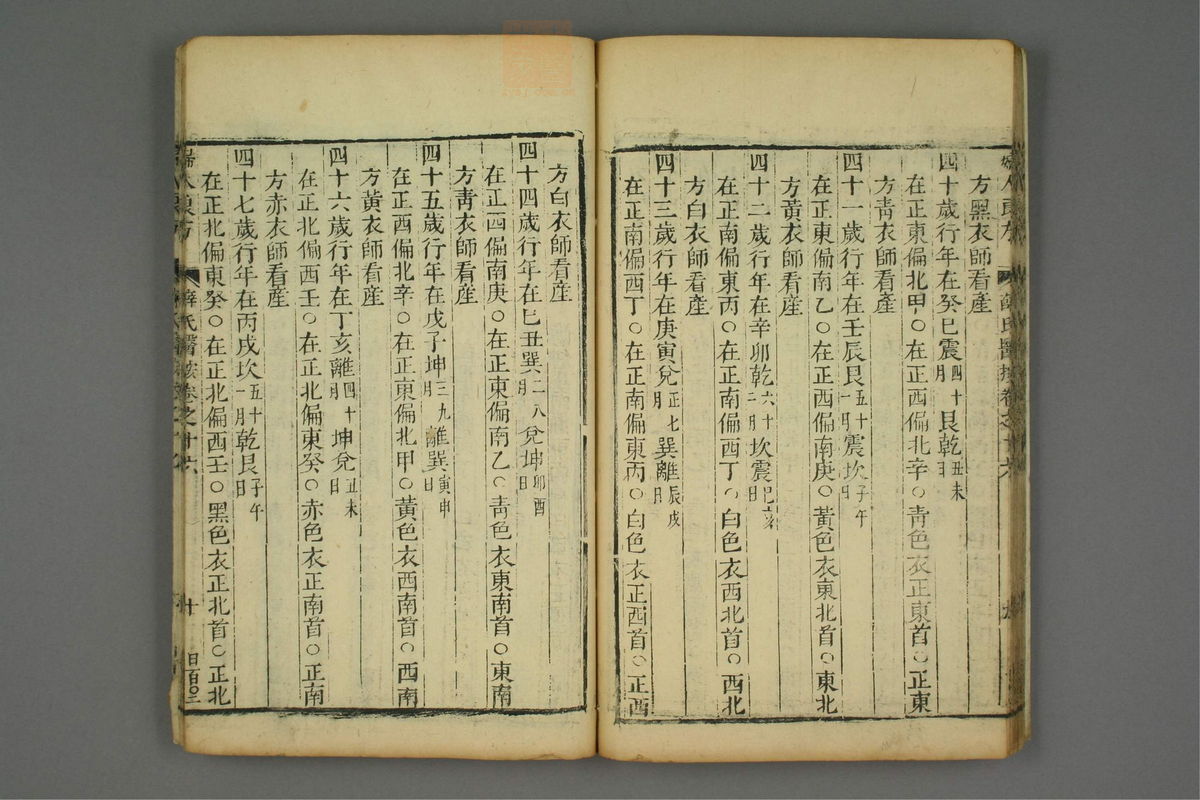 婦人良方 薛氏醫按卷之十六 九
方黑衣師看產
四十歲行年在癸巳震四十月艮乾丑未日
在正東偏北甲○在正西偏北辛○青色衣正東首○正東
方青衣師看產
四十一歲行年在壬辰艮五十一月震坎子午日
在正東偏南乙○在正西偏南庚○黃色衣東北首○東北
方黃衣師看產
四十二歲行年在辛卯乾六十二月坎震巳亥日
在正南偏東丙○在正南偏西丁○白色衣西北首○西北
方白衣師看產
四十三歲行年在庚寅兌正七月巽離辰戌日
在正南偏西丁○在正南偏東丙○白色衣正西首○正西
方白衣師看產
四十四歲行年在己丑巽二八月兌坤卯酉日
在正西偏南庚○在正東偏南乙○青色衣東南首○東南
方青衣師看產
四十五歲行年在戊子坤三九月離巽寅申日
在正西偏北辛○在正東偏北甲○黃色衣西南首○西南
方黃衣師看產
四十六歲行年在丁亥離四十月坤兌丑未日
在正北偏西壬○在正北偏東癸○赤色衣正南首○正南
方赤衣師看產
四十七歲行年在丙戌坎五十一月乾艮子午日
在正北偏東癸○在正北偏西壬○黑色衣正北首○正北
婦人良方 薛氏醫按卷之十六 十